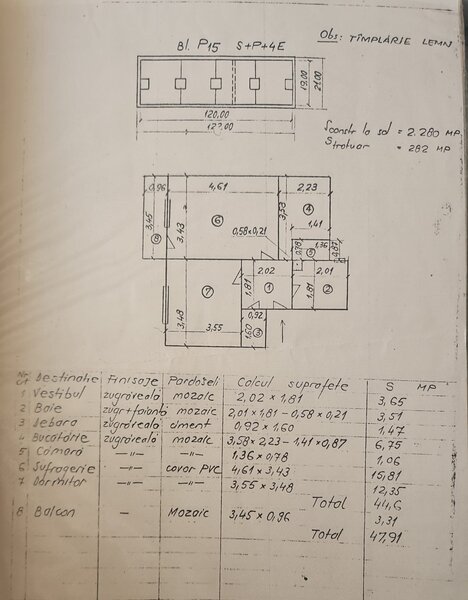 Obs: TÎMPLĂRIE LEMN
Bl. P15 S+P+4E
19.00
21.00
120.00
122.00
Sconstr la sol = 2.280 MP
Strotuar = 282 MP
0,96
4,61
2,23
3,45
3,43
6
3,58
4
1,41
0,58×0,21
8
0,78
1,36
5
0,87
2,02
2,01
7
1,81
1
1,81
2
3,48
3,55
0,92
1,60
3
Nr. crt Destinatie Finisaje Pardoseli Calcul suprafete S MP
1 Vestibul zugrăveală mozaic 2,02 × 1,81 3,65
2 Baie zugr+faianță mozaic 2,01×1,81-0,58×0,21 3,51
3 Debara zugrăveală ciment 0,92 × 1,60 1,47
4 Bucătărie zugrăveală mozaic 3,58×2,23-1,41×0,87 6,75
5 Cămară —"— —"— 1,36 × 0,78 1,06
6 Sufragerie —"— covor PVC 4,61 × 3,43 15,81
7 Dormitor —"— —"— 3,55 × 3,48 12,35
Total 44,6
8 Balcon — Mozaic 3,45 × 0,96 3,31
Total 47,91